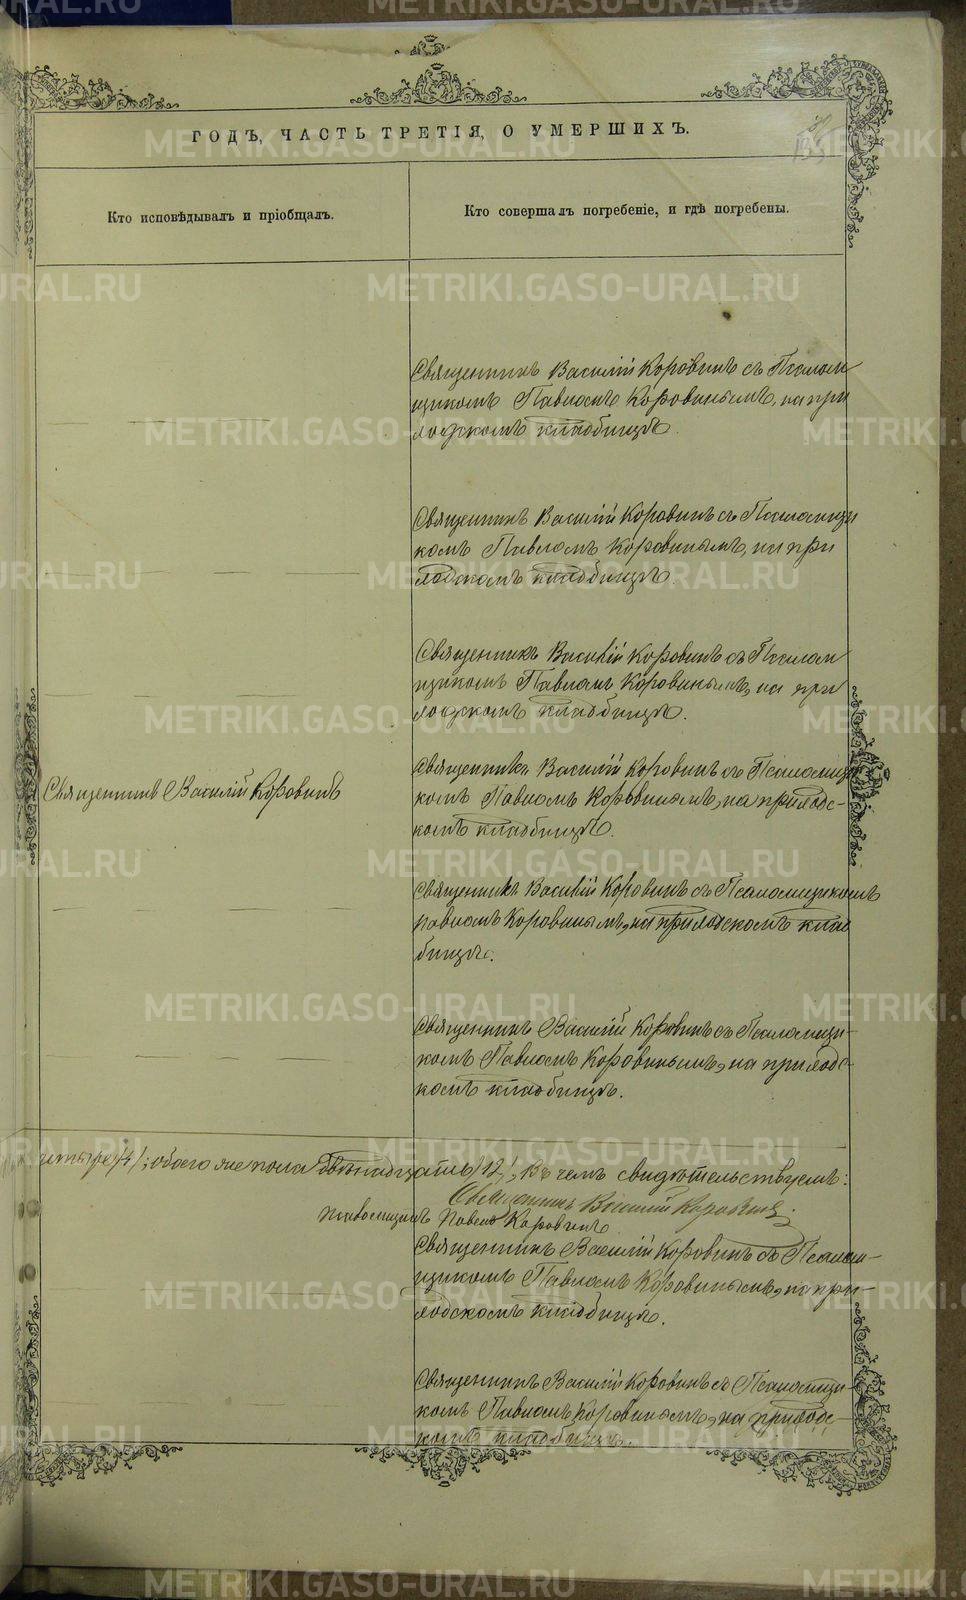 ГОДЪ, ЧАСТЬ ТРЕТІЯ, О УМЕРШИХЪ.
Кто исповѣдывалъ и пріобщалъ.
Кто совершалъ погребеніе, и гдѣ погребены.
Священникъ Василій Коровинъ съ Псалом
щикомъ Павломъ Коровинымъ, на при
ходскомъ кладбищѣ.
Священникъ Василій Коровинъ съ Псаломщи
комъ Павломъ Коровинымъ, на при
ходскомъ кладбищѣ.
Священникъ Василій Коровинъ съ Псалом
щикомъ Павломъ Коровинымъ, на при
ходскомъ кладбищѣ.
Священникъ Василій Коровинъ
Священникъ Василій Коровинъ съ Псаломщи
комъ Павломъ Коровинымъ, на приходс-
комъ кладбищѣ.
Священникъ Василій Коровинъ съ Псаломщикомъ
Павломъ Коровинымъ, на приходскомъ клад
бищѣ.
Священникъ Василій Коровинъ съ Псаломщи-
комъ Павломъ Коровинымъ, на приходс-
комъ кладбищѣ.
четыре /4/; обоего же пола двѣнадцать /12/; Въ чемъ свидѣтельствуемъ:
Священникъ Василій Коровинъ
Псаломщикъ Павелъ Коровинъ
Священникъ Василій Коровинъ съ Псалом-
щикомъ Павломъ Коровинымъ, на при-
ходскомъ кладбищѣ.
Священникъ Василій Коровинъ съ Псаломщи-
комъ Павломъ Коровинымъ, на приходс-
комъ кладбищѣ.
METRIKI.GASO-URAL.RU